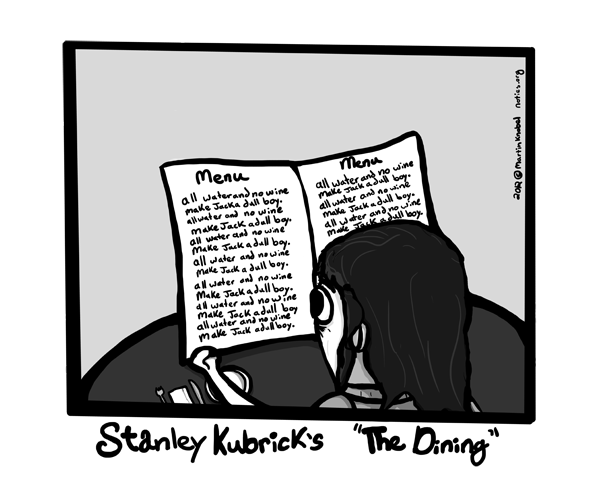 Menu
all water and no wine
make Jack a dull boy.
all water and no wine
make Jack a dull boy.
all water and no wine
make Jack a dull boy.
all water and no wine
make Jack a dull boy.
all water and no wine
Make Jack a dull boy.
all water and no wine
Make Jack a dull boy
all water and no wine
make Jack a dull boy.
Menu
all water and no wine
make Jack a dull boy.
all water and no wine
make Jack a dull boy.
all water and no wine
make Jack a dull boy.
2012 © Martin Knabel noties.org
Stanley Kubrick's "The Dining"